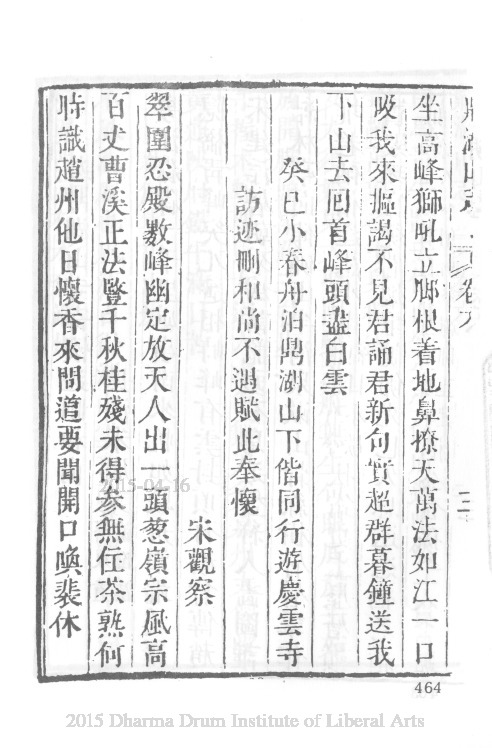 鼎湖山志 卷六
坐高峰獅吼立腳根着地鼻撩天萬法如江一口
吸我來摳謁不見君誦君新句實超群暮鐘送我
下山去回首峰頭盡白雲
癸巳小春舟泊鼎湖山下偕同行遊慶雲寺
訪迹刪和尚不遇賦此奉懷
宋觀察
翠圍忍殿數峰幽定放天人出一頭葱嶺宗風高
百丈曹溪正法豎千秋桂殘未得參無住茶熟何
時識趙州他日懷香來問道要聞開口喚裴休
2015-04-16
464
2015 Dharma Drum Institute of Liberal Arts